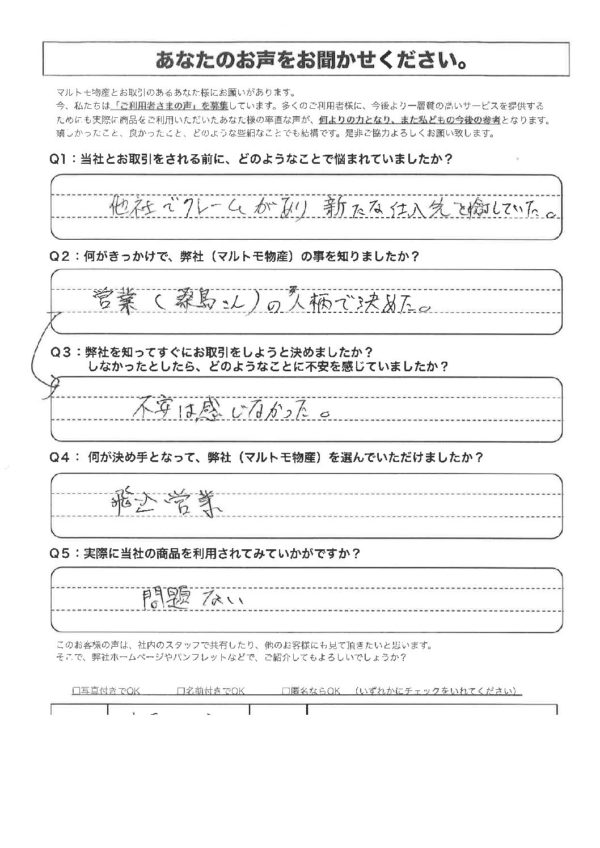 あなたのお声をお聞かせください。
マルトモ物産とお取引のあるあなた様にお願いがあります。
今、私たちは「ご利用者さまの声」を募集しています。多くのご利用者様に、今後より一層質の高いサービスを提供する
ためにも実際に商品をご利用いただいたあなた様の率直な声が、何よりの力となり、また私どもの今後の参考となります。
嬉しかったこと、良かったこと、どのような些細なことでも結構です。是非ご協力よろしくお願い致します。
Q1：当社とお取引をされる前に、どのようなことで悩まれていましたか？
他社でクレームがあり 新たな仕入先を検討していた。
Q2：何がきっかけで、弊社（マルトモ物産）の事を知りましたか？
営業（桑島さん）の人柄で決めた。
Q3：弊社を知ってすぐにお取引をしようと決めましたか？
しなかったとしたら、どのようなことに不安を感じていましたか？
不安は感じなかった。
Q4： 何が決め手となって、弊社（マルトモ物産）を選んでいただけましたか？
飛込営業
Q5：実際に当社の商品を利用されてみていかがですか？
問題ない
このお客様の声は、社内のスタッフで共有したり、他のお客様にも見て頂きたいと思います。
そこで、弊社ホームページやパンフレットなどで、ご紹介してもよろしいでしょうか？
□写真付きでOK □名前付きでOK □匿名ならOK （いずれかにチェックをいれてください）